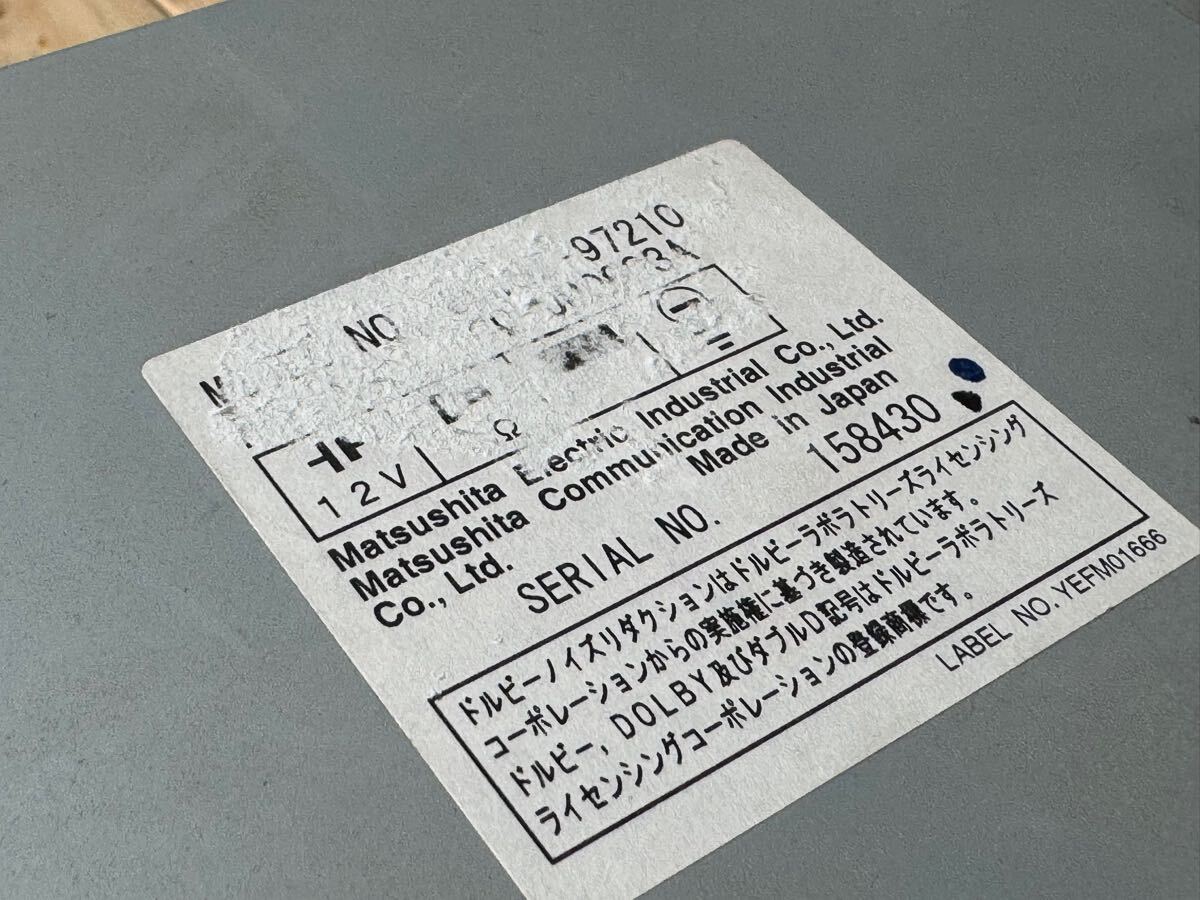 NO -97210
12V
Ω
Matsushita Electric Industrial Co., Ltd.
Matsushita Communication Industrial
Co., Ltd. Made in Japan
SERIAL NO. 158430
ドルビーノイズリダクションはドルビーラボラトリーズライセンシング
コーポレーションからの実施権に基づき製造されています。
ドルビー, DOLBY及びダブルD記号はドルビーラボラトリーズ
ライセンシングコーポレーションの登録商標です。
LABEL NO. YEFM01666